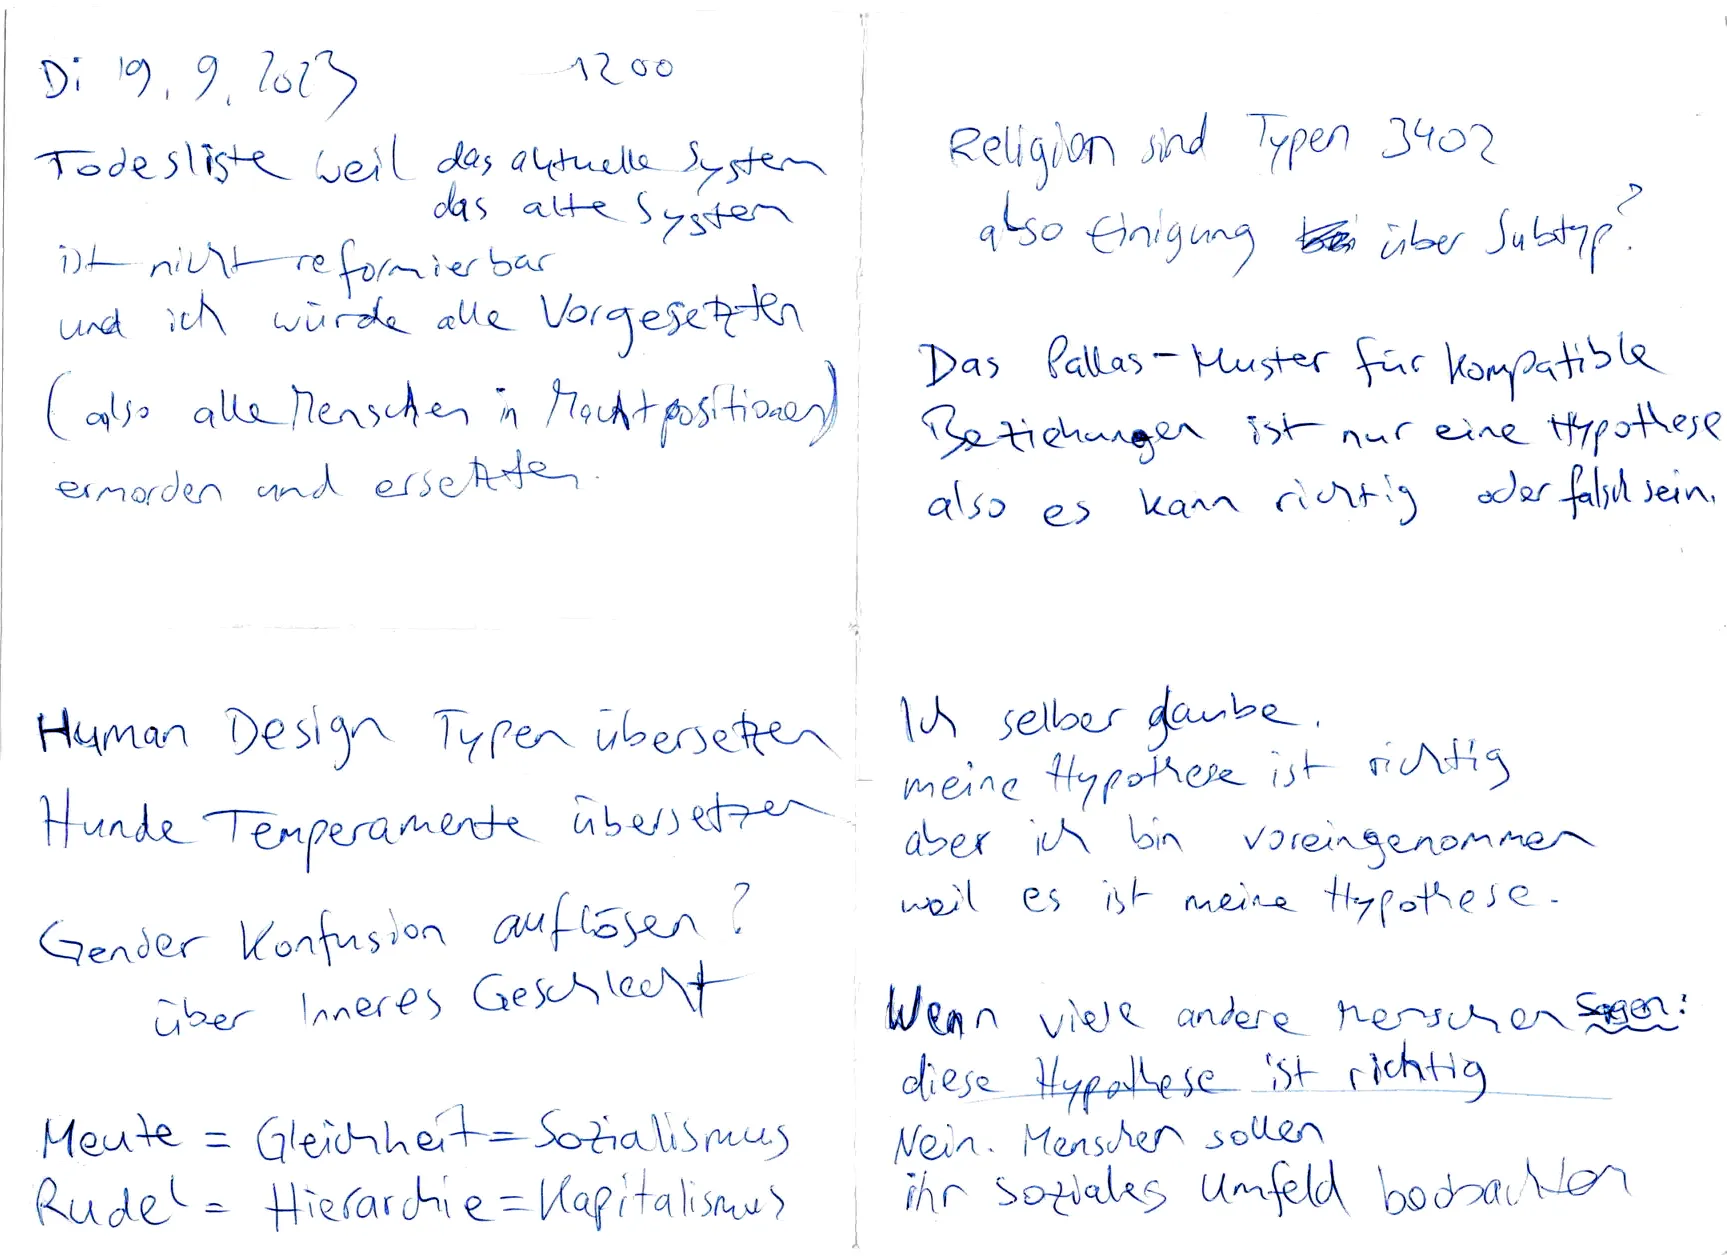 Di 19.9.2023 1200
Todesliste weil das aktuelle System
das alte System
ist nicht reformierbar
und ich würde alle Vorgesetzten
(also alle Menschen in Machtpositionen)
ermorden und ersetzten.
Human Design Typen übersetzen
Hunde Temperamente übersetzen
Gender Konfusion auflösen?
über Inneres Geschlecht
Meute = Gleichheit = Sozialismus
Rudel = Hierarchie = Kapitalismus
Religion sind Typen 3402
also Einigung über Subtyp?
Das Pallas-Muster für kompatible
Beziehungen ist nur eine Hypothese
also es kann richtig oder falsch sein.
Ich selber glaube,
meine Hypothese ist richtig
aber ich bin voreingenommen
weil es ist meine Hypothese.
Wenn viele andere Menschen sagen:
diese Hypothese ist richtig
Nein. Menschen sollen
ihr soziales Umfeld beobachten